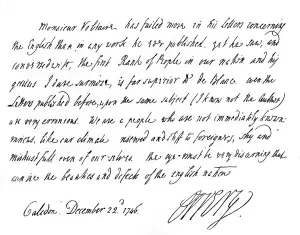 Monsieur Voltaire has failed more in his letters concerning
the English than in any work he ever published. yet he saw, and
conversed with, the first Rank of People in our nation and his
genius I dare surmise, is far superior to de Blanc's. even the
Letters published before, upon the same subject (I know not the Author)
are very erroneous. We are a people who are not immediately known.
various, like our climate reserved and stiff to foreigners, shy and
mistrustfull even of our selves the eye must be very discerning that
can see the beauties and defects of the English nation
Caledon. December 22.d 1746. Orrery.